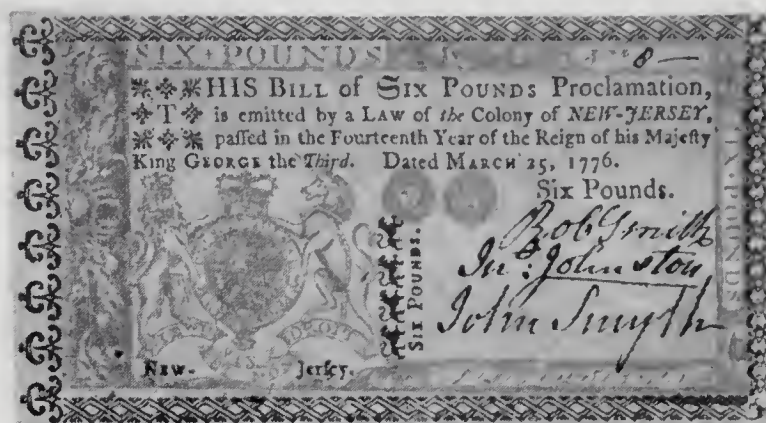 SIX POUNDS
8
THIS BILL of SIX POUNDS Proclamation,
is emitted by a LAW of the Colony of NEW-JERSEY,
paſſed in the Fourteenth Year of the Reign of his Majeſty
King GEORGE the Third. Dated MARCH 25, 1776.
Six Pounds.
SIX POUNDS.
SIX POUNDS
Rob Smith
Jnº. Johnston
John Smyth
NEW- Jerſey.